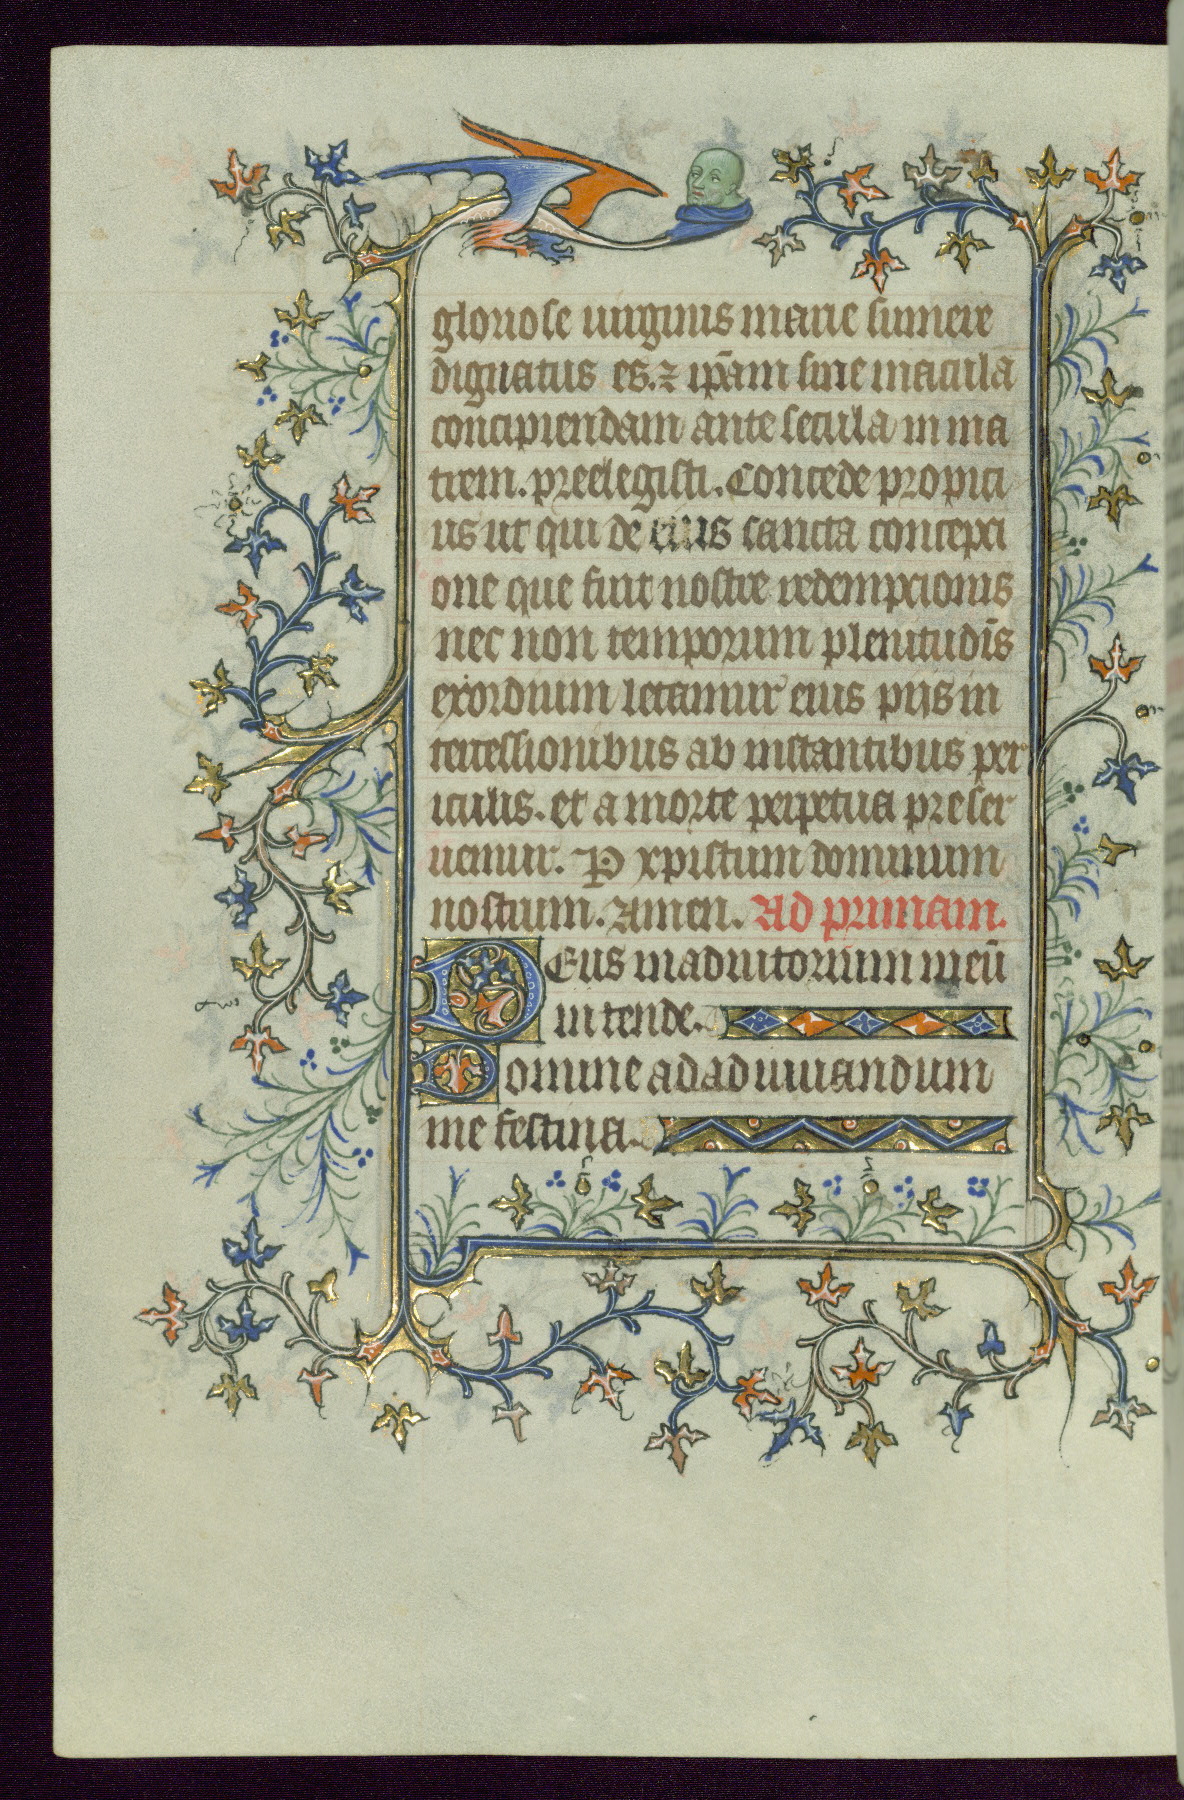 gloriose uirginis marie sumere
dignatus es. ⁊ ip̄am sine macula
concipiendam ante secula in ma
trem. preelegisti. Concede propici
us ut qui de eius sancta concepci
one que fuit nostre redempcionis
nec non temporum plenitudīs
exordium letamur eius pijs in
tercessionibus ab instantibus per
iculis. et a morte perpetua preser
uemur. P xpistum dominum
nostrum. Amen. Ad primam.
Deus in adiutorium meū
intende.
Domine ad adiuuandum
me festina.